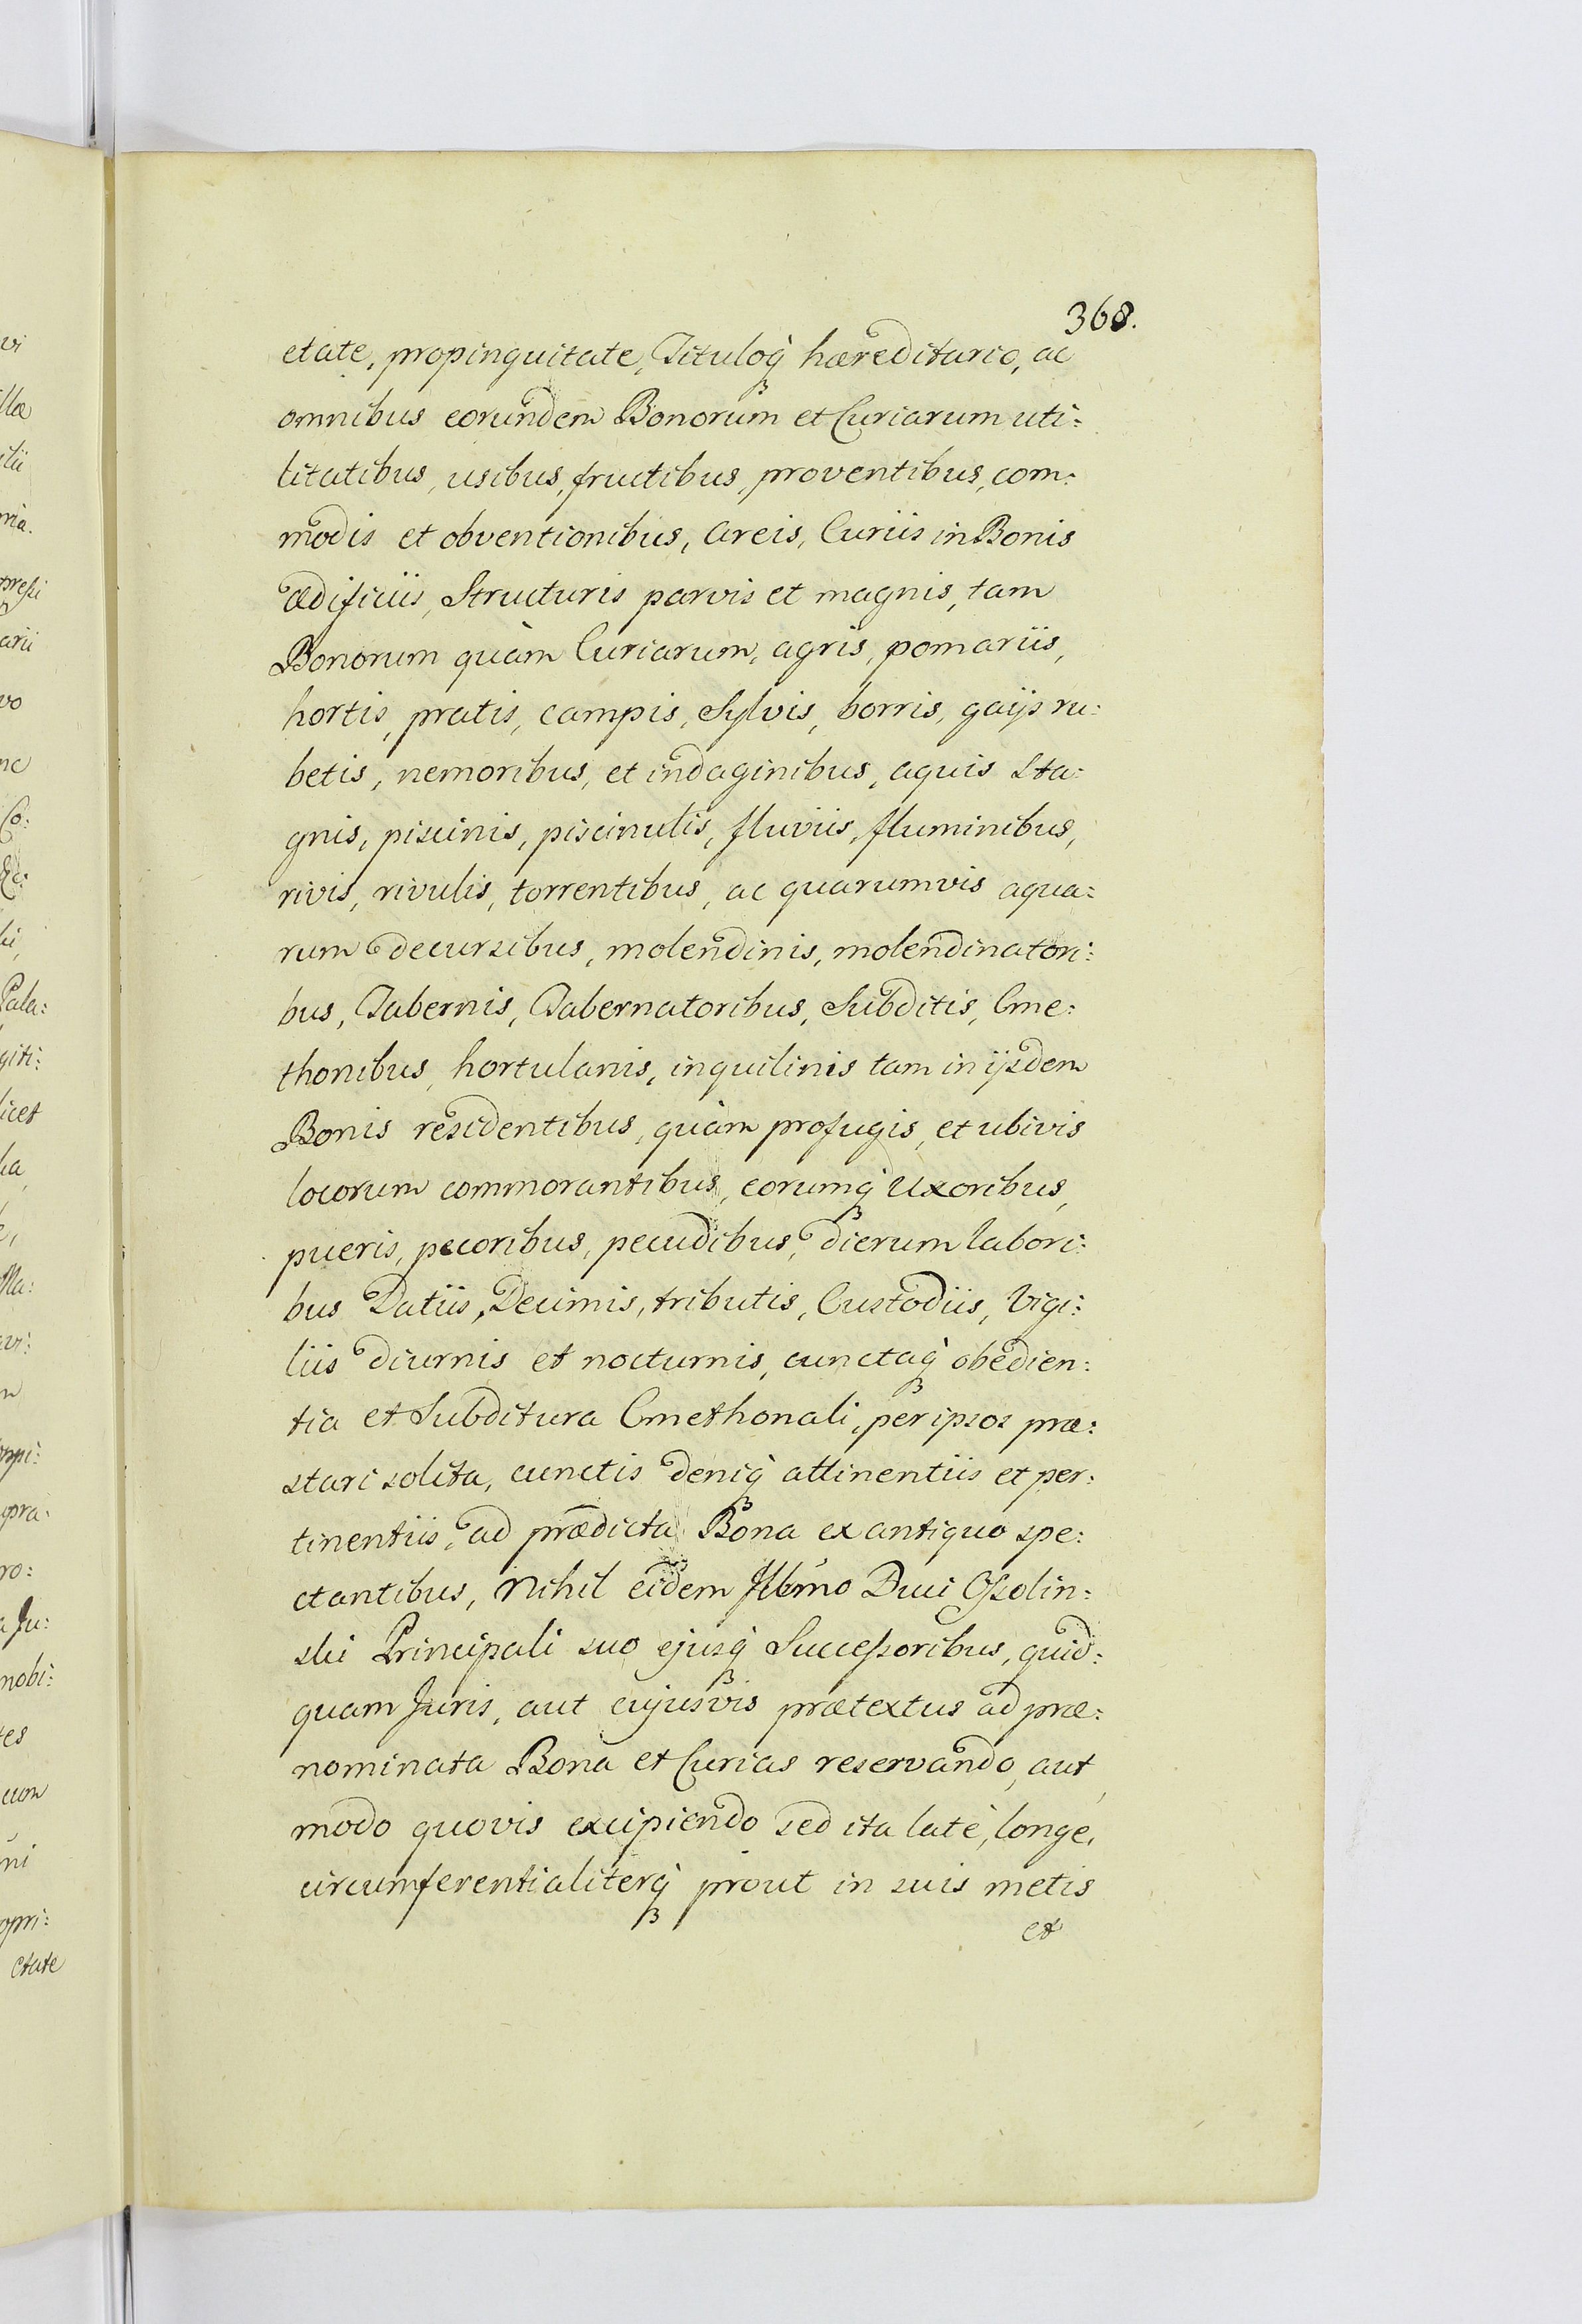 368.
etate, propinquitate, Tituloq̀ꝫ hæreditario, ac
omnibus eorundem Bonorum et Curiarum uti:
litatibus, usibus, fructibus, proventibus, com:
modis et obventionibus, Areis, Curiis in Bonis
ædificiis, Structuris parvis et magnis, tam
Bonorum quàm Curiarum, agris, pomariis,
hortis, pratis, campis, Sylvis, borris, gaijs ru:
betis, nemoribus, et indaginibus, aquis sta:
gnis, piscinis, piscinulis, fluviis, fluminibus,
rivis, rivulis, torrentibus, ac quarumvis aqua:
rum decursibus, molendinis, molendinatori:
bus, Tabernis, Tabernatoribus, Subditis, Cme:
thonibus, hortulanis, inquilinis tam in ijsdem
Bonis residentibus, quàm profugis, et ubivis
locorum commorantibus, eorumq̀ꝫ Uxoribus,
pueris, pecoribus, pecudibus, dierum labori:
bus Datiis, Decimis, tributis, Custodiis, Vigi:
liis diurnis et nocturnis, cunctaq̀ꝫ obedien:
tia et Subditura Cmethonali, per ipsos præ:
stari solita, cunctis deniq̀ꝫ attinentiis et per:
tinentiis, ad prædicta Bona ex antiquo spe:
ctantibus, Nihil eidem Illmo Duci Ossolin:
ski Principali suo ejusq̀ꝫ Successoribus, quid:
quam Juris, aut cujusvis prætextus ad præ:
nominata Bona et Curias reservando, aut
modo quovis excipiendo sed ita latè, longe,
circumferentialiterq̀ꝫ prout in suis metis
et
vi
llæ
arii
vo
nc
Co:
Pala:
giti:
licet
ha
Ma:
avi:
pra:
ro:
a Ju:
nobi:
tes
cum
ni
opri:
etate